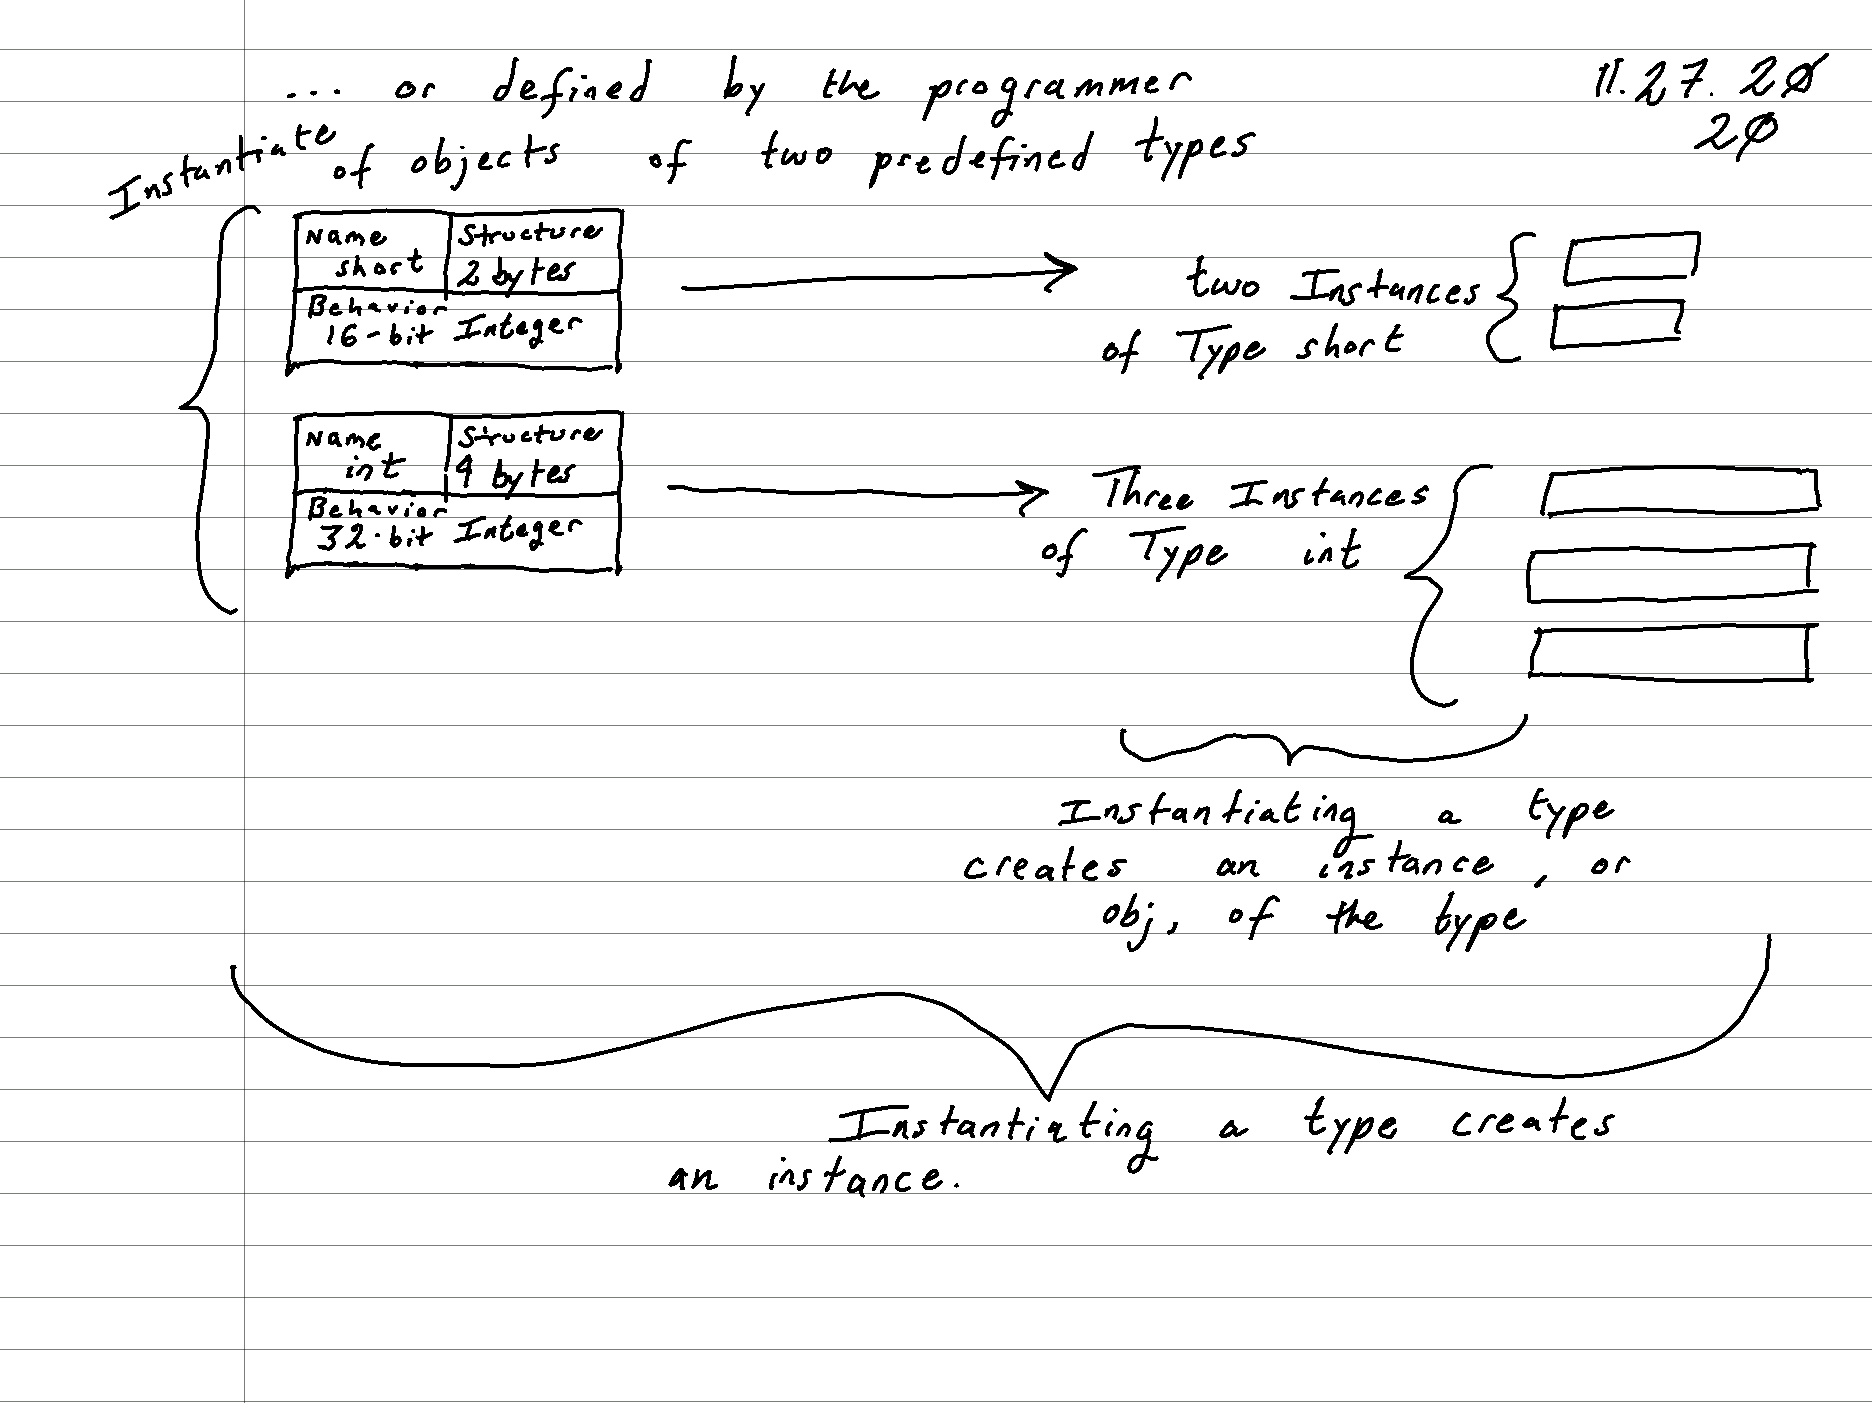 ... or defined by the programmer
11.27.20
20
Instantiate of objects of two predefined types
Name Structure
short 2 bytes
Behavior
16-bit Integer
two Instances
of Type short
Name Structure
int 4 bytes
Behavior
32-bit Integer
Three Instances
of Type int
Instantiating a type
creates an instance, or
obj, of the type
Instantiating a type creates
an instance.